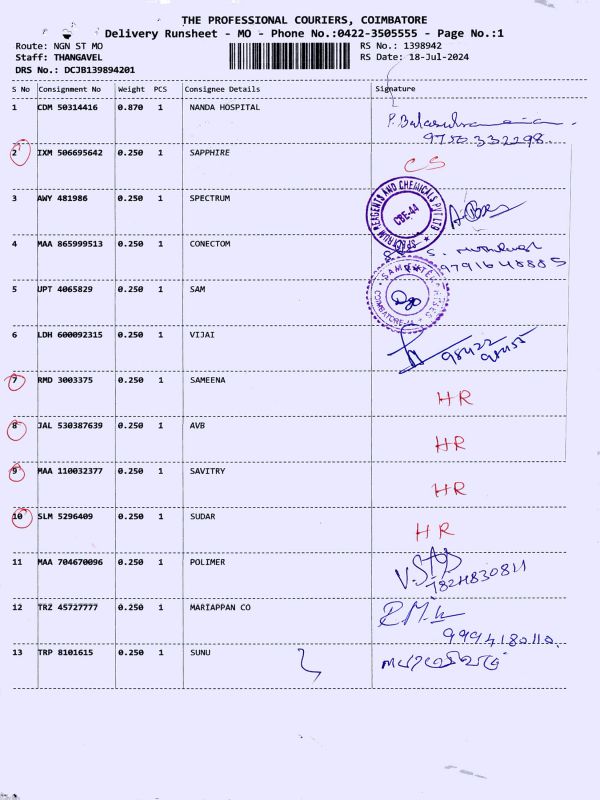 THE PROFESSIONAL COURIERS, COIMBATORE
Delivery Runsheet - MO - Phone No.:0422-3505555 - Page No.:1
Route: NGN ST MO RS No.: 1398942
Staff: THANGAVEL RS Date: 18-Jul-2024
DRS No.: DCJB139894201
S No Consignment No Weight PCS Consignee Details Signature
1 CDM 50314416 0.870 1 NANDA HOSPITAL
9750332298.
2 IXM 506695642 0.250 1 SAPPHIRE CS
3 AWY 481986 0.250 1 SPECTRUM
SPECTRUM REAGENTS AND CHEMICALS PVT LTD
CBE-44
4 MAA 865999513 0.250 1 CONECTOM
9791648885
5 UPT 4065829 0.250 1 SAM
COIMBATORE
6 LDH 600092315 0.250 1 VIJAI
98422
7 RMD 3003375 0.250 1 SAMEENA HR
8 JAL 530387639 0.250 1 AVB HR
9 MAA 110032377 0.250 1 SAVITRY HR
10 SLM 5296409 0.250 1 SUDAR HR
11 MAA 704670096 0.250 1 POLIMER
7824830811
12 TRZ 45727777 0.250 1 MARIAPPAN CO
9994180110.
13 TRP 8101615 0.250 1 SUNU